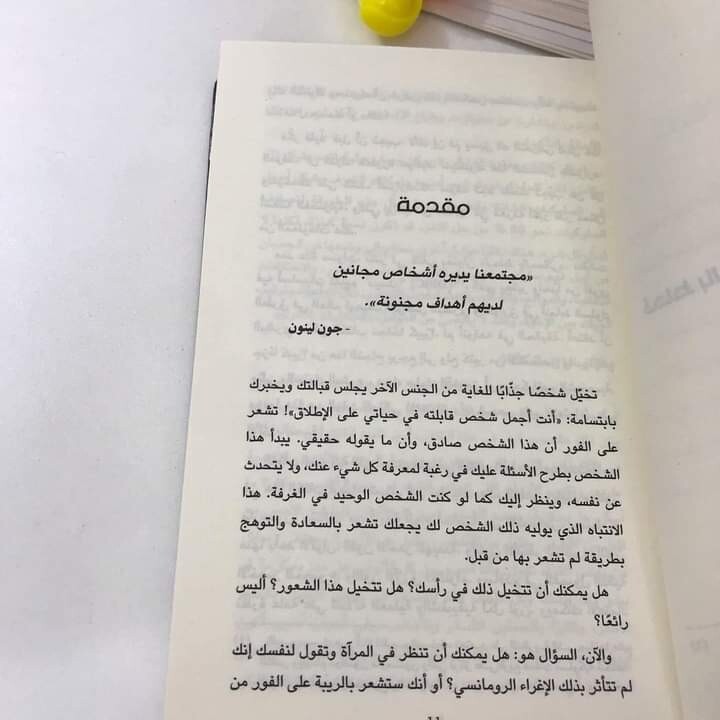 مقدمة
«مجتمعنا يديره أشخاص مجانين
لديهم أهداف مجنونة».
- جون لينون
تخيّل شخصًا جذّابًا للغاية من الجنس الآخر يجلس قبالتك ويخبرك
بابتسامة: «أنت أجمل شخص قابلته في حياتي على الإطلاق»! تشعر
على الفور أن هذا الشخص صادق، وأن ما يقوله حقيقي. يبدأ هذا
الشخص بطرح الأسئلة عليك في رغبة لمعرفة كل شيء عنك، ولا يتحدث
عن نفسه، وينظر إليك كما لو كنت الشخص الوحيد في الغرفة. هذا
الانتباه الذي يوليه ذلك الشخص لك يجعلك تشعر بالسعادة والتوهج
بطريقة لم تشعر بها من قبل.
هل يمكنك أن تتخيل ذلك في رأسك؟ هل تتخيل هذا الشعور؟ أليس
رائعًا؟
والآن، السؤال هو: هل يمكنك أن تنظر في المرآة وتقول لنفسك إنك
لم تتأثر بذلك الإغراء الرومانسي؟ أو أنك ستشعر بالريبة على الفور من